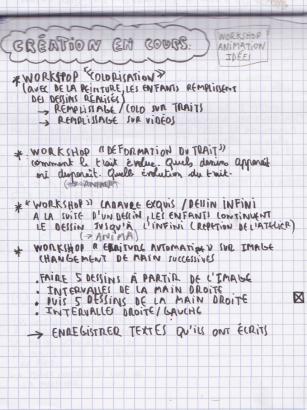 CRÉATION EN COURS.
WORKSHOP
ANIMATION
IDÉES
* WORKSHOP "COLORISATION"
(AVEC DE LA PEINTURE, LES ENFANTS REMPLISSENT
DES DESSINS RÉALISÉS)
→ REMPLISSAGE / COLO SUR TRAITS
→ REMPLISSAGE SUR VIDÉOS
* WORKSHOP "DÉFORMATION DU TRAIT"
comment le trait évolue. Quels dessins apparaît
ou disparaît. Quelle évolution du trait.
(→ ANIMA)
* "WORKSHOP" CADAVRE EXQUIS / DESSIN INFINI
A LA SUITE D'UN DESSIN, LES ENFANTS CONTINUENT
LE DESSIN JUSQU'À L'INFINI (RÉPÉTITION DE L'ATELIER)
(→ ANIMA)
* WORKSHOP "ÉCRITURE AUTOMATIQUE" SUR IMAGE
CHANGEMENT DE MAIN SUCCESSIVES
. FAIRE 5 DESSINS À PARTIR DE L'IMAGE
• INTERVALLES DE LA MAIN DROITE
• PUIS 5 DESSINS DE LA MAIN DROITE
• INTERVALLES DROITE / GAUCHE
→ ENREGISTRER TEXTES QU'ILS ONT ÉCRITS